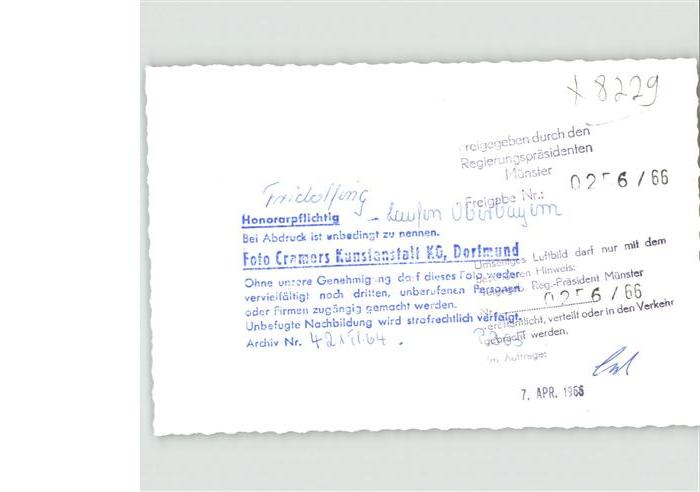 x 8229
Freigegeben durch den
Regierungspräsidenten
Münster
Freigabe Nr.: 0256/66
Fridolfing
- Laufen Oberbayern
Honorarpflichtig
Bei Abdruck ist unbedingt zu nennen.
Foto Cramers Kunstanstalt KG, Dortmund
Ohne unsere Genehmigung darf dieses Foto weder
vervielfältigt noch dritten, unberufenen Personen
oder Firmen zugängig gemacht werden.
Unbefugte Nachbildung wird strafrechtlich verfolgt.
Archiv Nr.
Umseitiges Luftbild darf nur mit dem
Hinweis:
Reg.-Präsident Münster
Nr. 0256/66
veröffentlicht, verteilt oder in den Verkehr
gebracht werden.
Im Auftrage:
7. APR. 1966